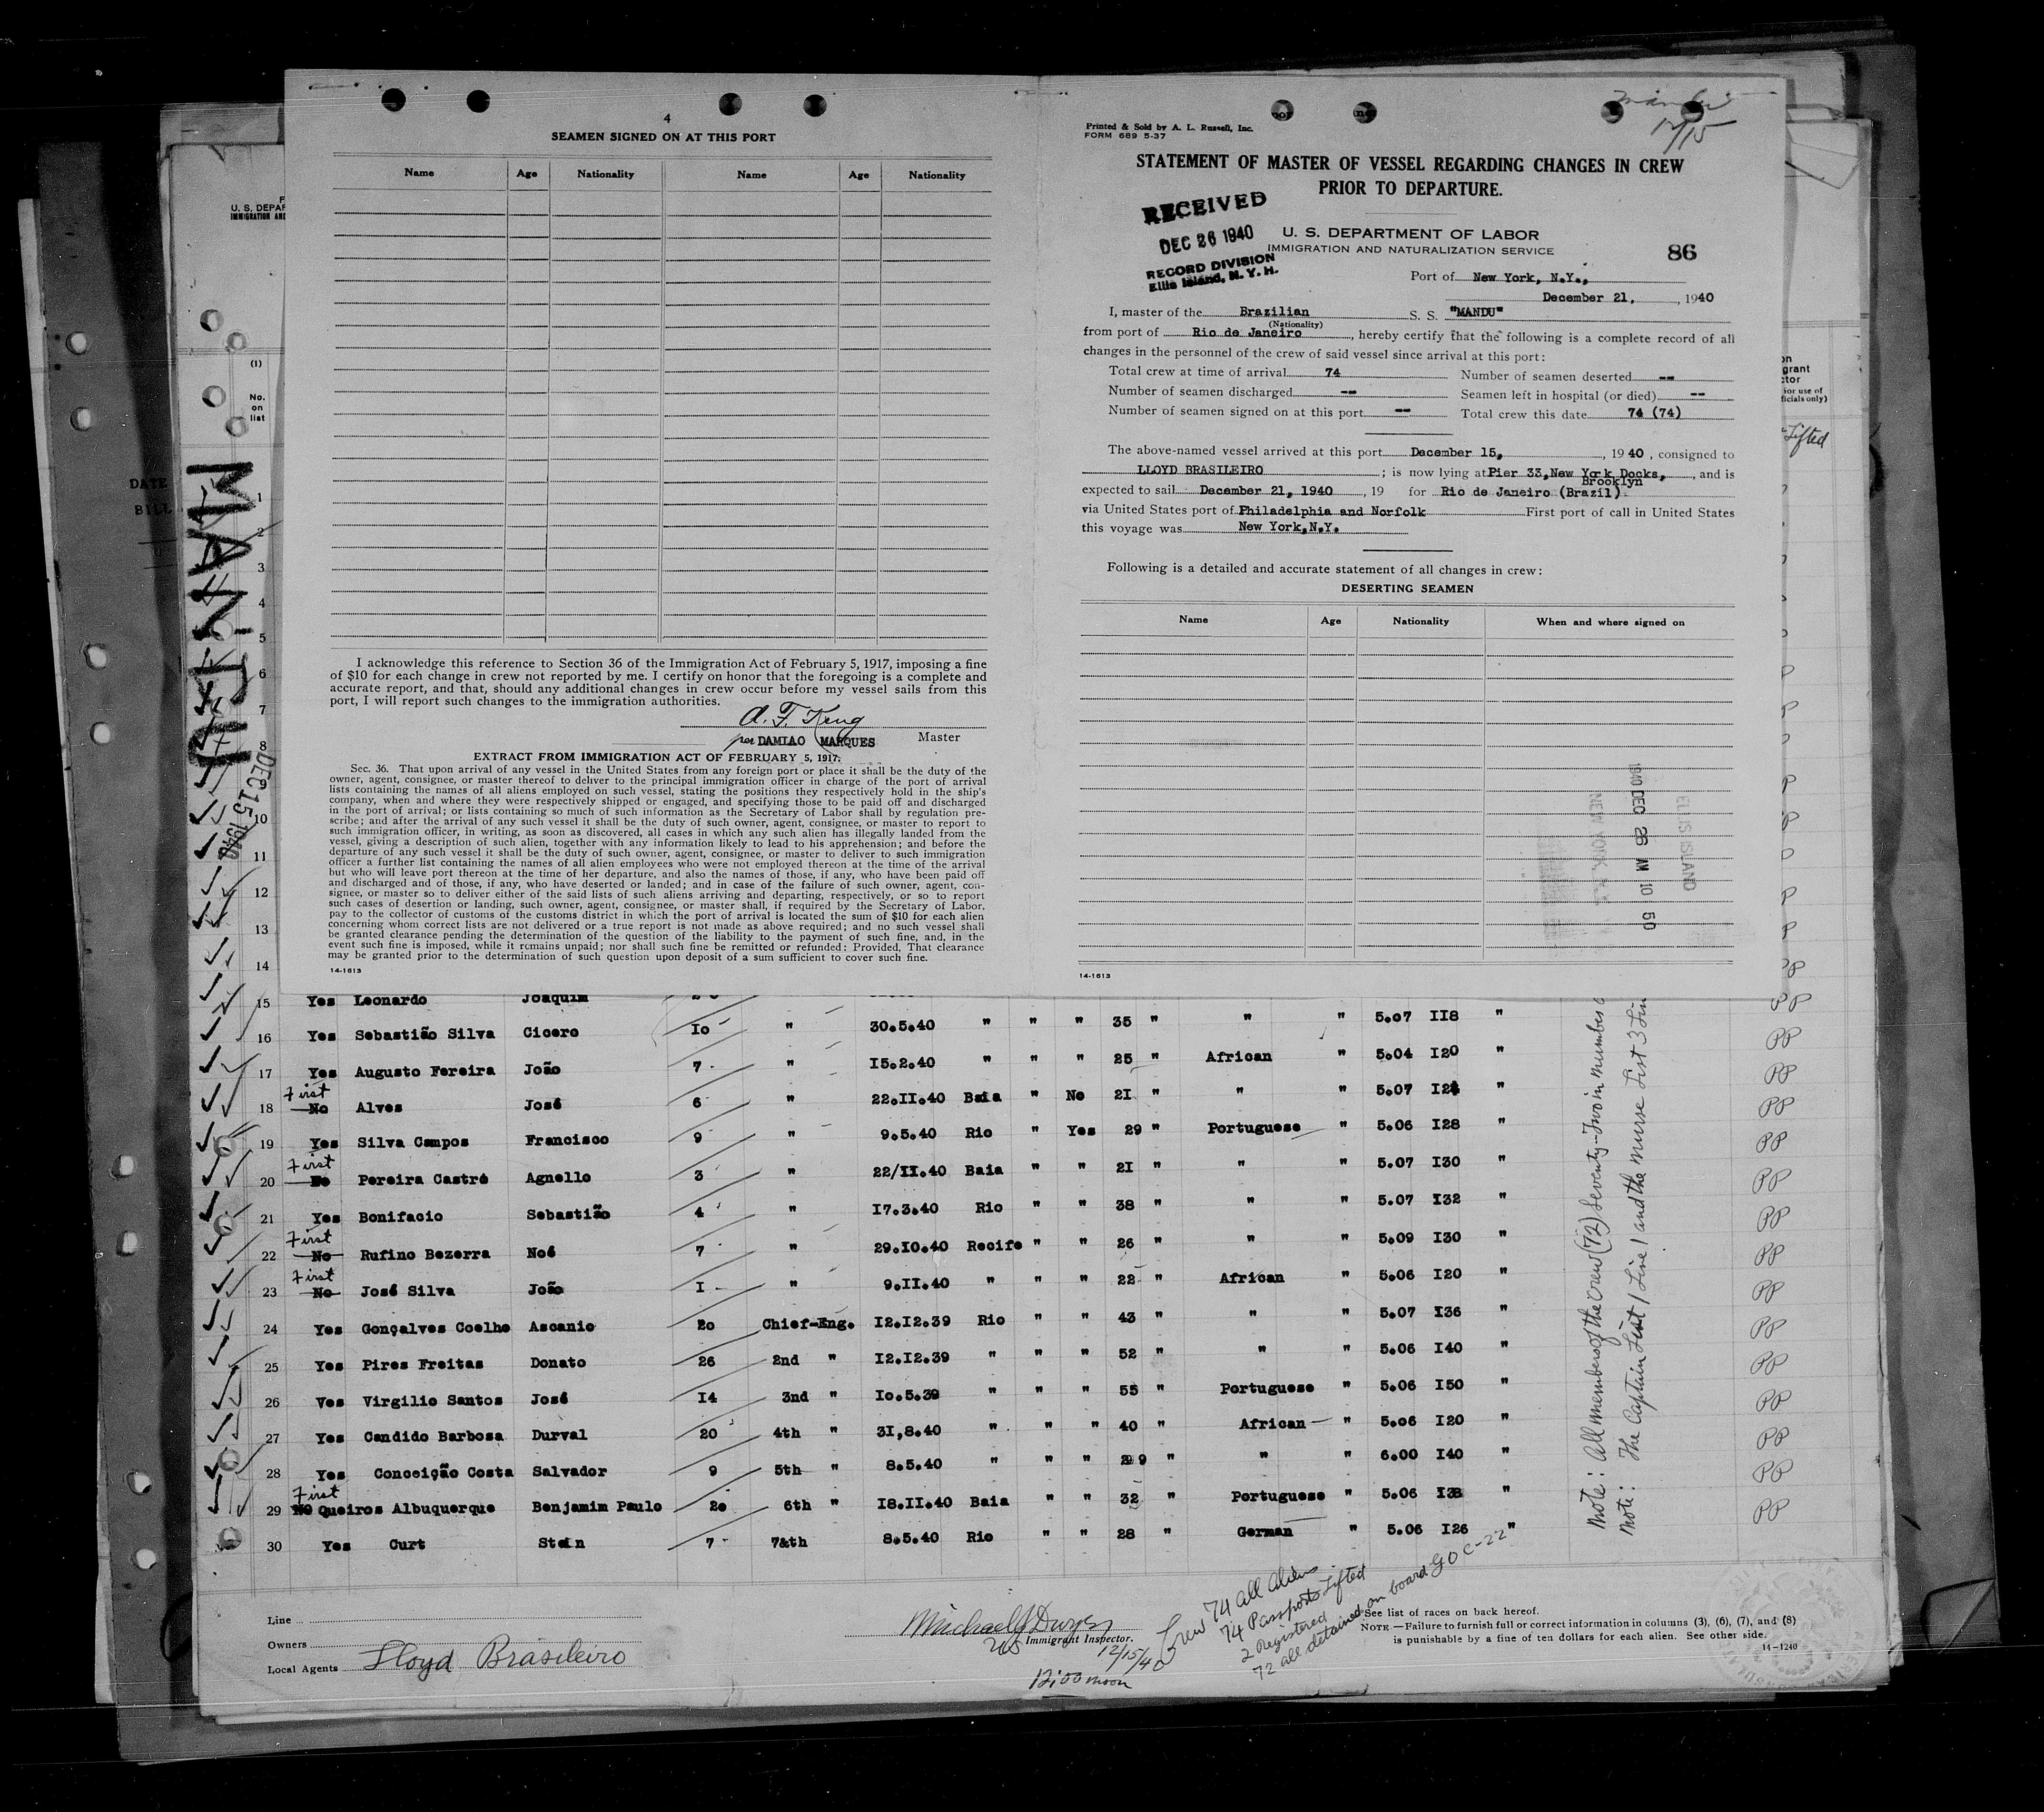 4
SEAMEN SIGNED ON AT THIS PORT
Name Age Nationality Name Age Nationality
I acknowledge this reference to Section 36 of the Immigration Act of February 5, 1917, imposing a fine
of $10 for each change in crew not reported by me. I certify on honor that the foregoing is a complete and
accurate report, and that, should any additional changes in crew occur before my vessel sails from this
port, I will report such changes to the immigration authorities.
A. F. King
por DAMIAO MARQUES Master
EXTRACT FROM IMMIGRATION ACT OF FEBRUARY 5, 1917.
Sec. 36. That upon arrival of any vessel in the United States from any foreign port or place it shall be the duty of the
owner, agent, consignee, or master thereof to deliver to the principal immigration officer in charge of the port of arrival
lists containing the names of all aliens employed on such vessel, stating the positions they respectively hold in the ship's
company, when and where they were respectively shipped or engaged, and specifying those to be paid off and discharged
in the port of arrival; or lists containing so much of such information as the Secretary of Labor shall by regulation pre-
scribe; and after the arrival of any such vessel it shall be the duty of such owner, agent, consignee, or master to report to
such immigration officer, in writing, as soon as discovered, all cases in which any such alien has illegally landed from the
vessel, giving a description of such alien, together with any information likely to lead to his apprehension; and before the
departure of any such vessel it shall be the duty of such owner, agent, consignee, or master to deliver to such immigration
officer a further list containing the names of all alien employees who were not employed thereon at the time of the arrival
but who will leave port thereon at the time of her departure, and also the names of those, if any, who have been paid off
and discharged and of those, if any, who have deserted or landed; and in case of the failure of such owner, agent, con-
signee, or master so to deliver either of the said lists of such aliens arriving and departing, respectively, or so to report
such cases of desertion or landing, such owner, agent, consignee, or master shall, if required by the Secretary of Labor,
pay to the collector of customs of the customs district in which the port of arrival is located the sum of $10 for each alien
concerning whom correct lists are not delivered or a true report is not made as above required; and no such vessel shall
be granted clearance pending the determination of the question of the liability to the payment of such fine, and, in the
event such fine is imposed, while it remains unpaid; nor shall such fine be remitted or refunded: Provided, That clearance
may be granted prior to the determination of such question upon deposit of a sum sufficient to cover such fine.
14-1613
12/15
Printed & Sold by A. L. Russell, Inc.
FORM 689 5-37
STATEMENT OF MASTER OF VESSEL REGARDING CHANGES IN CREW
PRIOR TO DEPARTURE.
RECEIVED
DEC 26 1940
RECORD DIVISION
Ellis Island, N. Y. H.
U. S. DEPARTMENT OF LABOR
IMMIGRATION AND NATURALIZATION SERVICE
86
Port of New York, N.Y.,
December 21, 1940
I, master of the Brazilian S. S. "MANDU"
(Nationality)
from port of Rio de Janeiro, hereby certify that the following is a complete record of all
changes in the personnel of the crew of said vessel since arrival at this port:
Total crew at time of arrival 74 Number of seamen deserted --
Number of seamen discharged -- Seamen left in hospital (or died) --
Number of seamen signed on at this port -- Total crew this date 74 (74)
The above-named vessel arrived at this port December 15, 1940, consigned to
LLOYD BRASILEIRO; is now lying at Pier 33, New York Docks, and is
Brooklyn
expected to sail December 21, 1940, 19 for Rio de Janeiro (Brazil)
via United States port of Philadelphia and Norfolk First port of call in United States
this voyage was New York, N.Y.
Following is a detailed and accurate statement of all changes in crew:
DESERTING SEAMEN
Name Age Nationality When and where signed on
ELLIS ISLAND
1940 DEC 26 AM 10 50
NEW YORK
14-1613
U. S. DEPAR
IMMIGRATION AND
(1)
No.
on
list
DATE
BILL
MANDU
DEC 15 1940
grant
ctor
Lifted
1
2
3
4
5
6
7
8
9
10
11
12
13
14
15 Yes Leonardo Joaquim PP
16 Yes Sebastião Silva Cicero Io " 30.5.40 " " " 35 " " " 5.07 II8 " PP
17 Yes Augusto Fereira João 7 " I5.2.40 " " " 25 " African " 5.04 I20 " PP
18 First No Alves José 6 " 22.II.40 Baia " No 2I " " " 5.07 I24 " PP
19 Yes Silva Campos Francisco 9 " 9.5.40 Rio " Yes 29 " Portuguese " 5.06 I28 " PP
20 First No Pereira Castro Agnello 3 " 22/II.40 Baia " " 2I " " " 5.07 I30 " PP
21 Yes Bonifacio Sebastião 4 " I7.3.40 Rio " " 38 " " " 5.07 I32 " PP
22 First No Rufino Bezerra Noé 7 " 29.I0.40 Recife " " 26 " " " 5.09 I30 " PP
23 First No José Silva João I " 9.II.40 " " " 22 " African " 5.06 I20 " PP
24 Yes Gonçalves Coelho Ascanio 2o Chief-Eng. I2.I2.39 Rio " " 43 " " " 5.07 I36 " PP
25 Yes Pires Freitas Donato 26 2nd " I2.I2.39 " " " 52 " " " 5.06 I40 " PP
26 Yes Virgilio Santos José I4 3nd " Io.5.39 " " " 55 " Portuguese " 5.06 I50 " PP
27 Yes Candido Barbosa Durval 20 4th " 3I,8.40 " " " 40 " African " 5.o6 I20 " PP
28 Yes Conceição Costa Salvador 9 5th " 8.5.40 " " " 29 " " " 6.00 I40 " PP
29 First No Queiros Albuquerque Benjamim Paulo 2o 6th " I8.II.40 Baia " " 32 " Portuguese " 5.06 I38 " PP
30 Yes Curt Stein 7 7th 8.5.40 Rio " " 28 " German " 5.06 I26 " PP
Note: All members of the crew (72) Seventy-Two in number
Note: The Captain List 1 Line 1 and the Nurse List 3 Lin
Line
Owners
Local Agents Lloyd Brasileiro
Michael J Dwyer
US Immigrant Inspector.
12/15/40
12:00 noon
Crew 74 all aliens
74 Passports Lifted
2 Registered
72 all detained on board GO C-22
See list of races on back hereof.
NOTE.—Failure to furnish full or correct information in columns (3), (6), (7), and (8)
is punishable by a fine of ten dollars for each alien. See other side.
14-1240